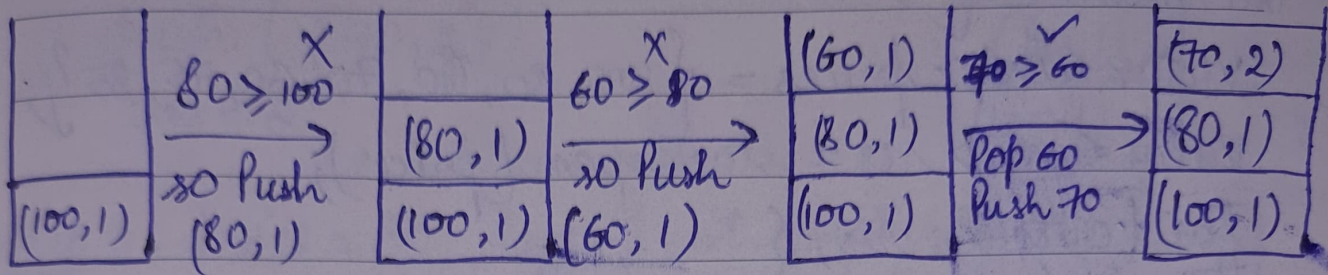 (100,1)
X
80 ≥ 100
so Push
(80,1)
(80,1)
(100,1)
X
60 ≥ 80
so Push
(60,1)
(60,1)
(80,1)
(100,1)
✓
70 ≥ 60
Pop 60
Push 70
(70,2)
(80,1)
(100,1)